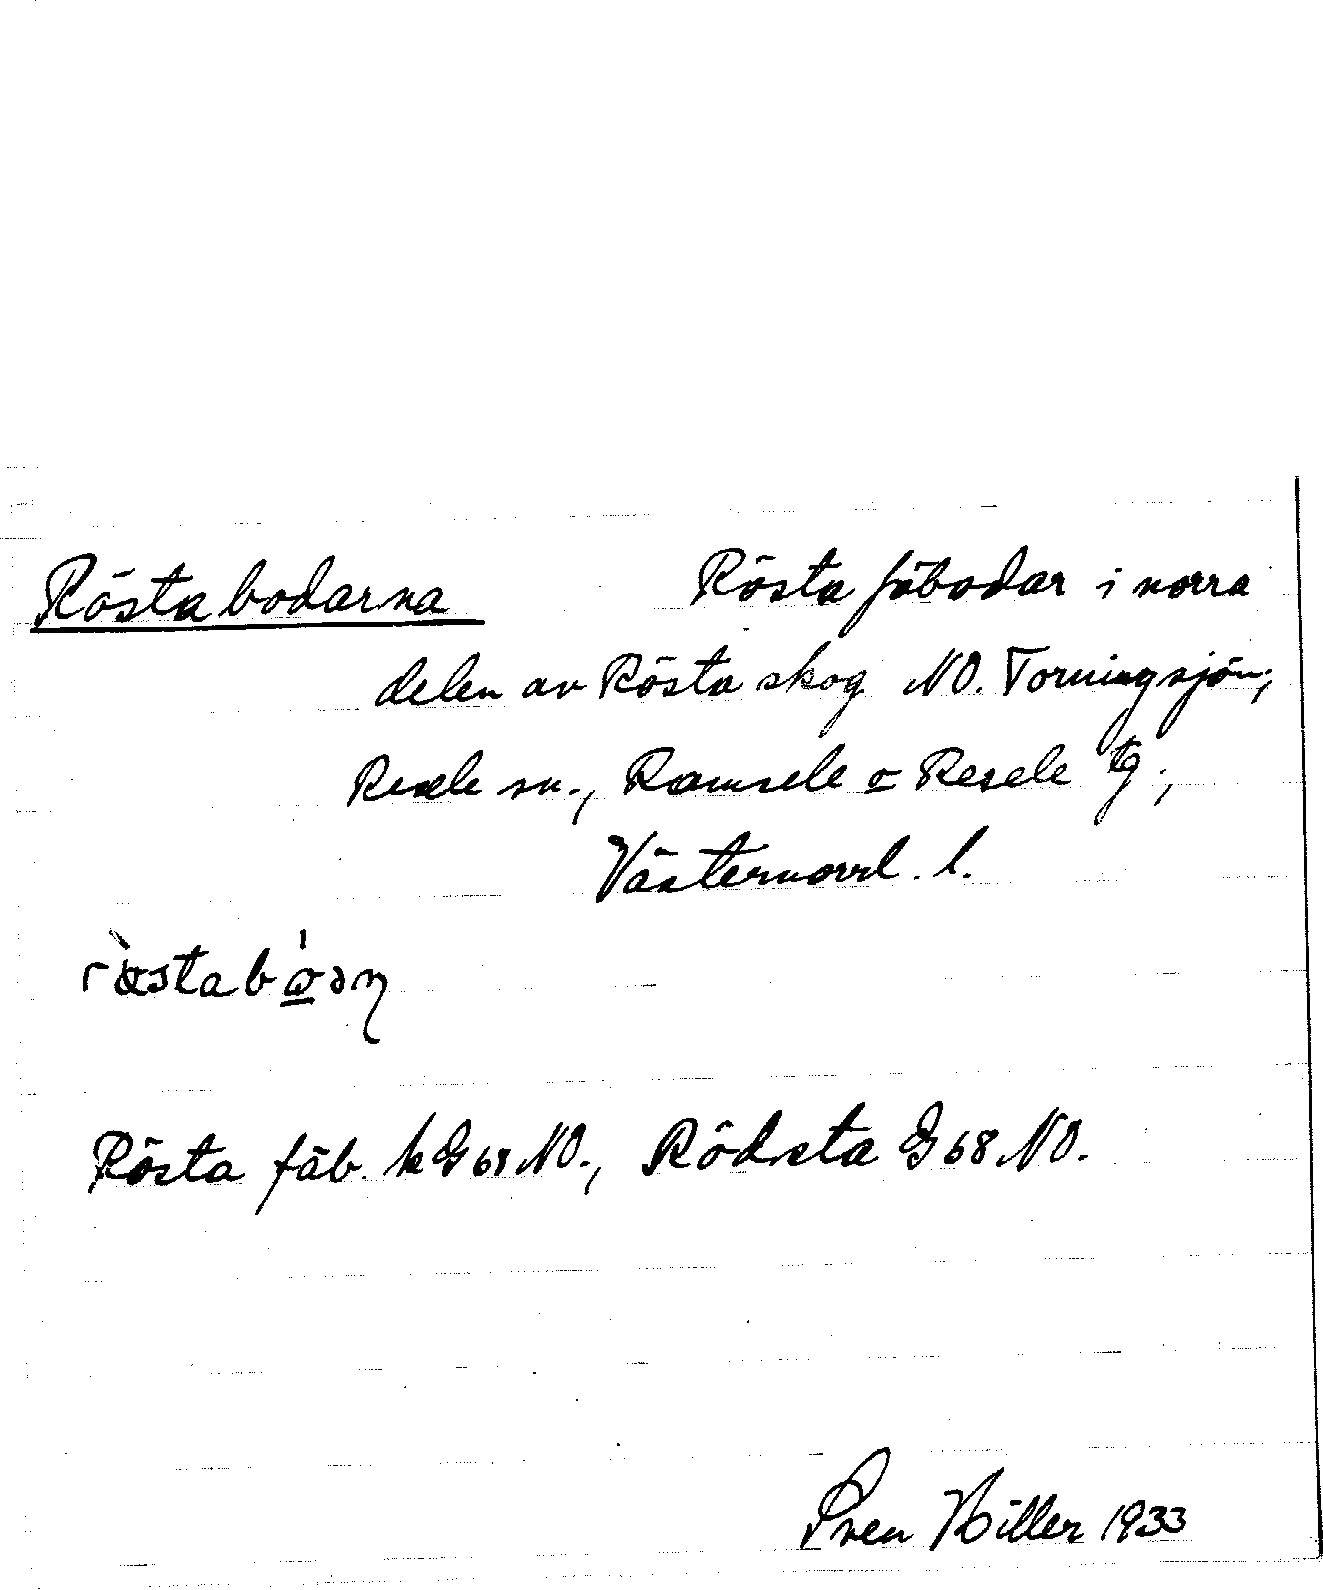 Röstabodarna Rösta fäbodar i norra
delen av Rösta skog NO. Torningsjön;
Resele sn., Ramsele o Resele tg.,
Västernorrl. l.
Rösta fäb. k G 68 NO., Rödsta G 68 NO.
Sven Hiller 1933